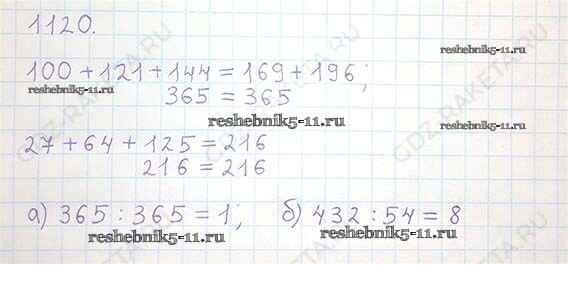 1120.
reshebnik5-11.ru
100 + 121 + 144 = 169 + 196;
reshebnik5-11.ru
365 = 365
reshebnik5-11.ru
reshebnik5-11.ru
27 + 64 + 125 = 216
216 = 216
а) 365 : 365 = 1; б) 432 : 54 = 8
reshebnik5-11.ru reshebnik5-11.ru
GDZ-RAKETA.RU
GDZ-RAKETA.RU